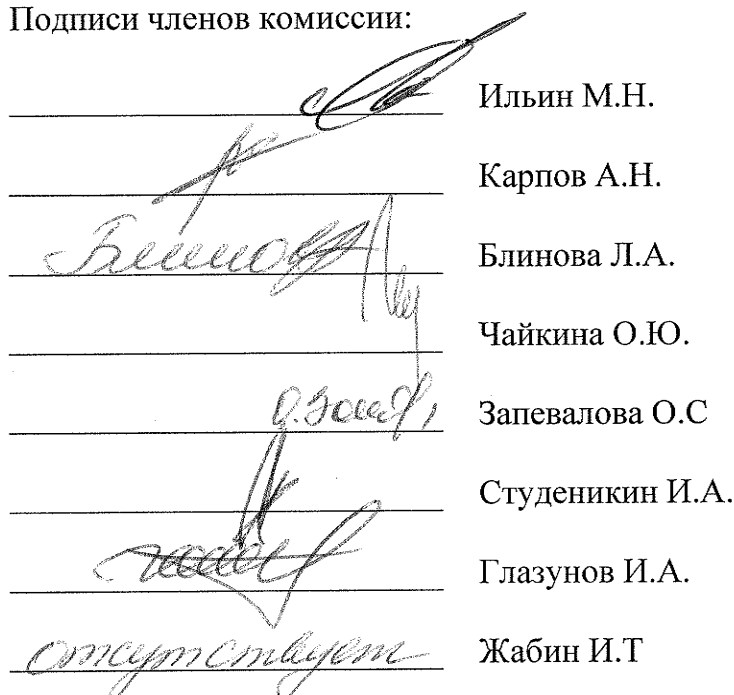 Подписи членов комиссии:
Ильин М.Н.
Карпов А.Н.
Блинова Блинова Л.А.
Чайкина О.Ю.
Запевалова О.С
Студеникин И.А.
Глазунов И.А.
отсутствует Жабин И.Т